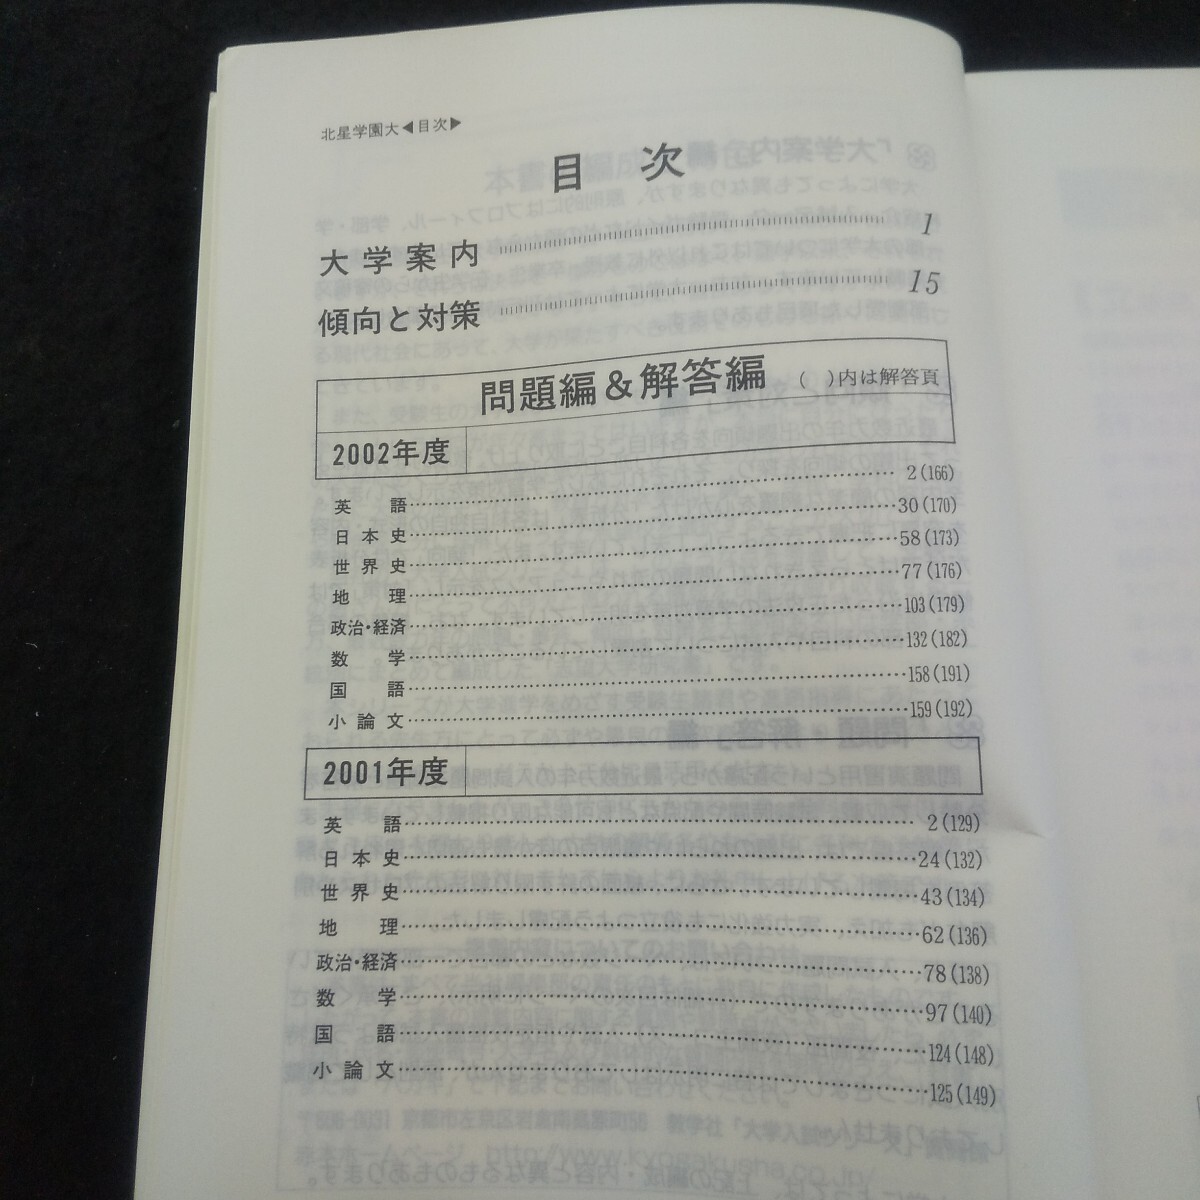 北星学園大◀目次▶
目次
大学案内 1
傾向と対策 15
問題編＆解答編 （ ）内は解答頁
2002年度
英語 2(166)
日本史 30(170)
世界史 58(173)
地理 77(176)
政治・経済 103(179)
数学 132(182)
国語 158(191)
小論文 159(192)
2001年度
英語 2(129)
日本史 24(132)
世界史 43(134)
地理 62(136)
政治・経済 78(138)
数学 97(140)
国語 124(148)
小論文 125(149)